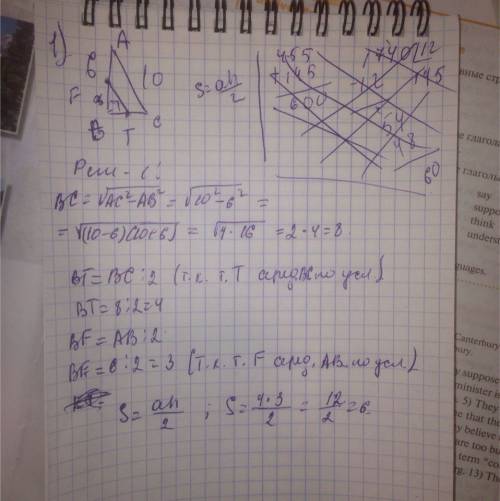 1)
A
6
10
F
B
T
C
S = ah/2
455
+145
600
1740 | 12
12
145
54
48
60
Реш-е:
BC = √AC²-AB² = √10²-6² =
= √(10-6)(10+6) = √4·16 = 2·4=8
BT = BC:2 (т.к. т. T серед. BC по усл.)
BT = 8:2=4
BF = AB:2
BF = 6:2=3 (т.к. т. F серед. AB по усл.)
S = ah/2 ; S = 4·3/2 = 12/2 = 6
say
suppo
think
underst
guages.
Canterbury
bury.
y suppose
minister is
5) They
e that the
y believe
are too bu
term "co
rg. 13) The